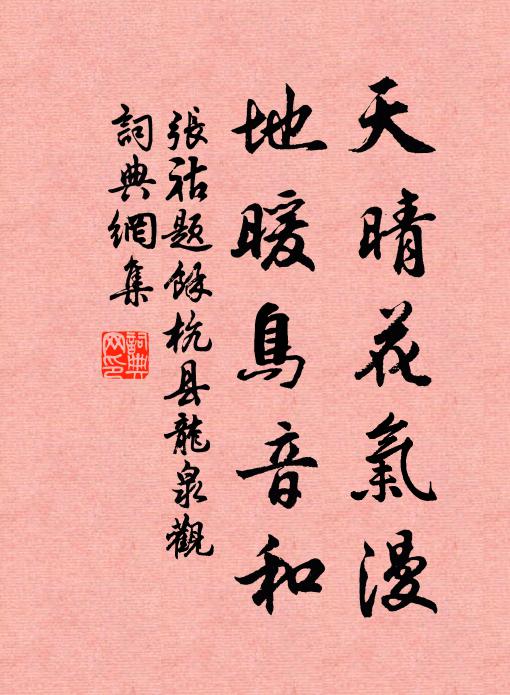 天晴花氣漫
地暖鳥音和
張祜題餘杭县龍泉觀
詞典網集
詞典网印